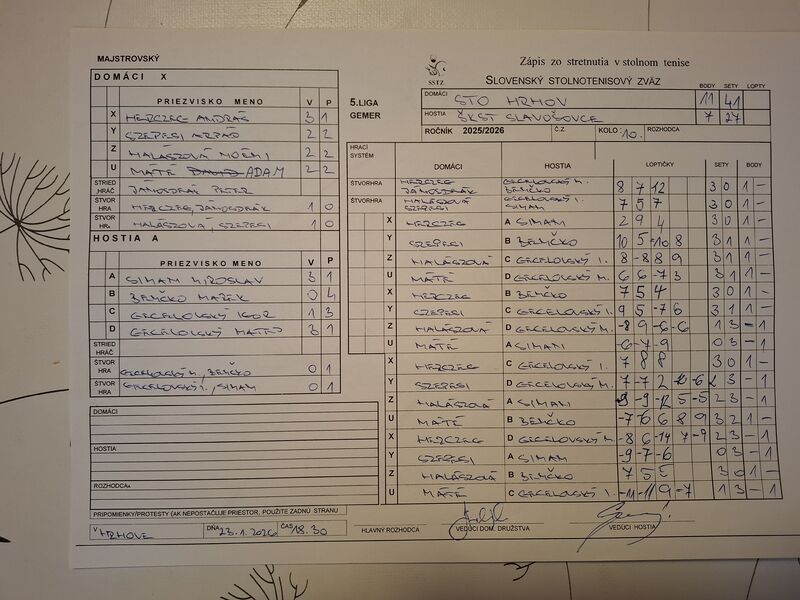 MAJSTROVSKÝ
DOMÁCI X
PRIEZVISKO MENO V P
X HERCZEG ANDRÁS 3 1
Y SZEPESI ARPÁD 2 2
Z HALÁSZOVÁ NOÉMI 2 2
U MÁTÉ ADAM 2 2
STRIED HRÁČ JÁNOSDEÁK PETER
ŠTVOR HRA HERCZEG, JÁNOSDEÁK 1 0
ŠTVOR HRA HALÁSZOVÁ, SZEPESI 1 0
HOSTIA A
PRIEZVISKO MENO V P
A SIMAN MIROSLAV 3 1
B BENČKO MAREK 0 4
C GECELOVSKÝ IGOR 1 3
D GECELOVSKÝ MATEJ 3 1
STRIED HRÁČ
ŠTVOR HRA GECELOVSKÝ M., BENČKO 0 1
ŠTVOR HRA GECELOVSKÝ I., SIMAN 0 1
DOMÁCI
HOSTIA
ROZHODCA
PRIPOMIENKY/PROTESTY (AK NEPOSTAČUJE PRIESTOR, POUŽITE ZADNÚ STRANU
V HRHOVE DŇA 23.1.2026 ČAS 18.30
SSTZ
Zápis zo stretnutia v stolnom tenise
SLOVENSKÝ STOLNOTENISOVÝ ZVÄZ
5.LIGA
GEMER
BODY SETY LOPTY
DOMÁCI STO HRHOV 11 41
HOSTIA ŠKST SLAVOŠOVCE 7 27
ROČNÍK 2025/2026 Č.Z. KOLO: 10. ROZHODCA
HRACÍ SYSTÉM DOMÁCI HOSTIA LOPTIČKY SETY BODY
ŠTVORHRA HERCZEG JÁNOSDEÁK GECELOVSKÝ M. BENČKO 8 7 12 3 0 1 -
ŠTVORHRA HALÁSZOVÁ SZEPESI GECELOVSKÝ I. SIMAN 7 5 7 3 0 1 -
X HERCZEG A SIMAN 2 9 4 3 0 1 -
Y SZEPESI B BENČKO 10 5 -10 8 3 1 1 -
Z HALÁSZOVÁ C GECELOVSKÝ I. 8 -8 8 9 3 1 1 -
U MÁTÉ D GECELOVSKÝ M. 6 6 -7 3 3 1 1 -
X HERCZEG B BENČKO 7 5 4 3 0 1 -
Y SZEPESI C GECELOVSKÝ I. 9 5 -7 6 3 1 1 -
Z HALÁSZOVÁ D GECELOVSKÝ M. -8 9 -6 -6 1 3 - 1
U MÁTÉ A SIMAN -6 -7 -9 0 3 - 1
X HERCZEG C GECELOVSKÝ I. 7 8 8 3 0 1 -
Y SZEPESI D GECELOVSKÝ M. 7 -7 2 -6 2 3 - 1
Z HALÁSZOVÁ A SIMAN -9 -12 5 -5 2 3 - 1
U MÁTÉ B BENČKO -7 6 6 8 9 3 2 1 -
X HERCZEG D GECELOVSKÝ M. -8 6 -14 7 -9 2 3 - 1
Y SZEPESI A SIMAN -9 -7 -6 0 3 - 1
Z HALÁSZOVÁ B BENČKO 7 5 5 3 0 1 -
U MÁTÉ C GECELOVSKÝ I. -11 -11 9 -7 1 3 - 1
HLAVNÝ ROZHODCA VEDÚCI DOM. DRUŽSTVA VEDÚCI HOSTIA